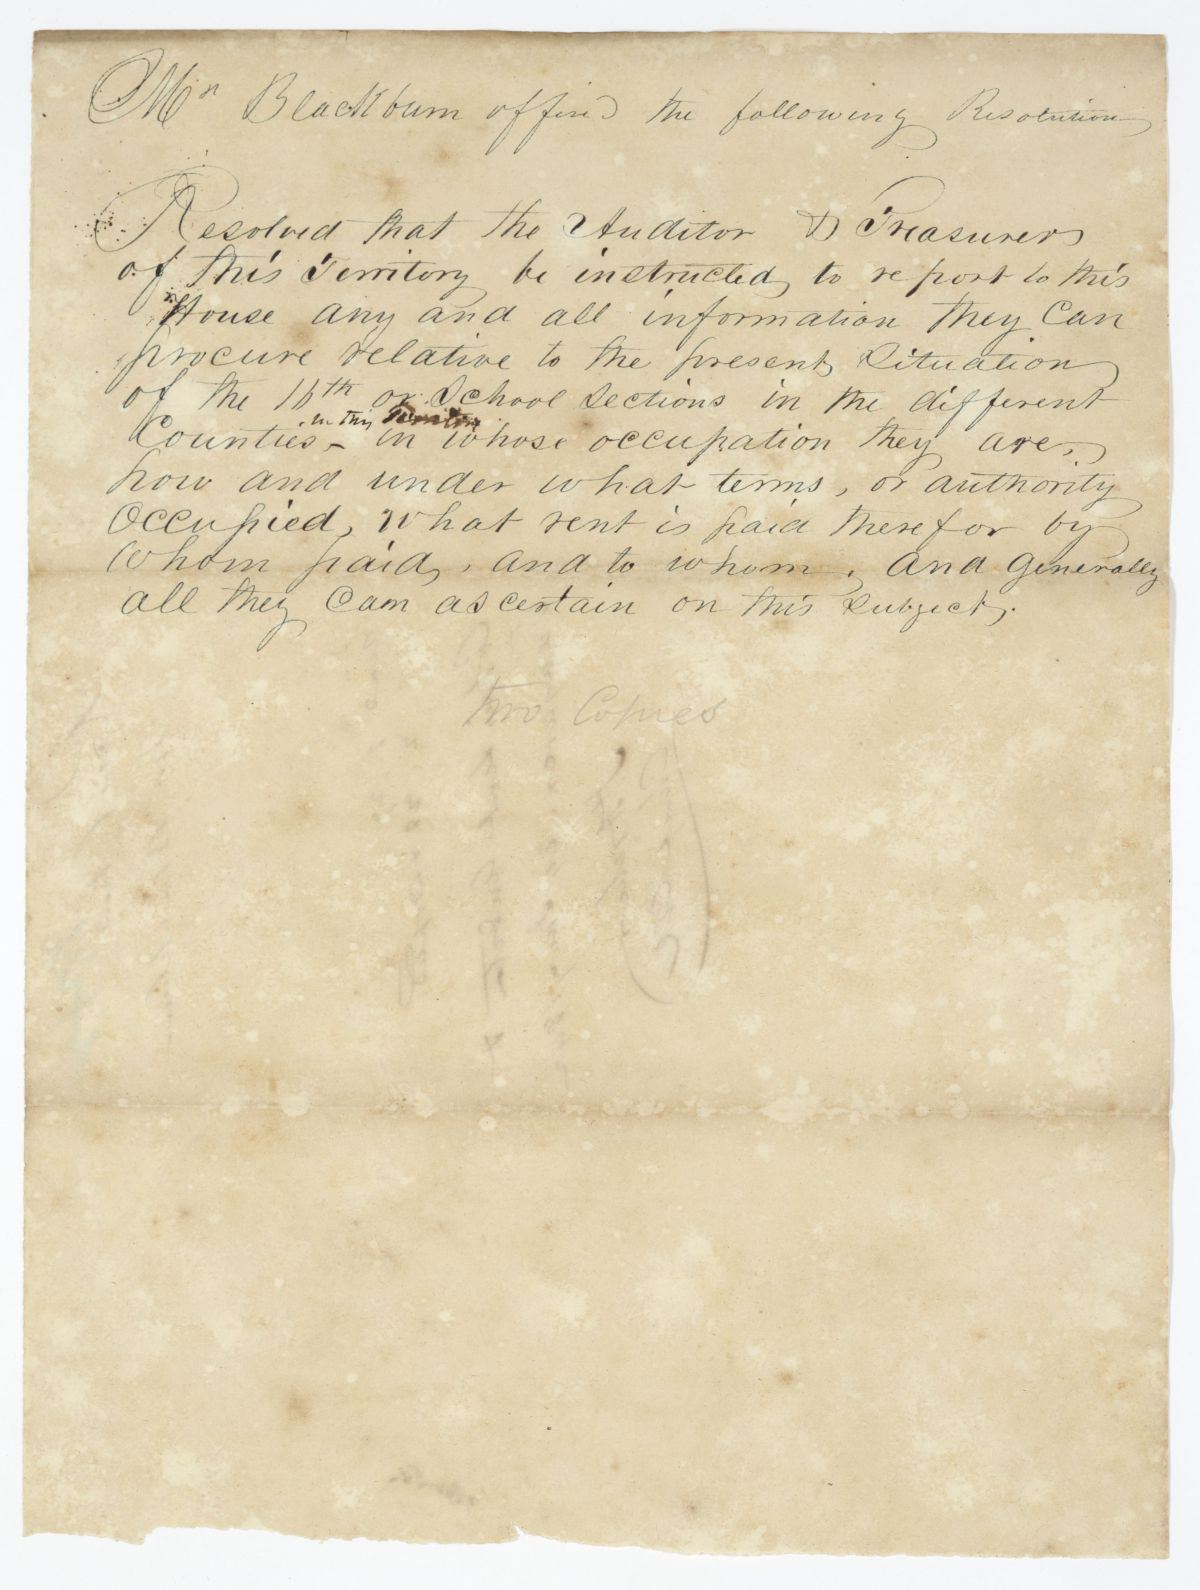 Mr Blackburn offired the following Resolution
Resolved that the Auditor & Treasurer
of this Territory be instructed to report to this
House any and all information they Can
procure relative to the present Situation
of the 16th or School Sections in the different
in this Territory
Counties - in whose occupation they are,
how and under what terms, or authority
Occupied, What rent is paid therefor by
Whom paid, and to whom, And generally
all they Can ascertain on this Subject.
two Copies